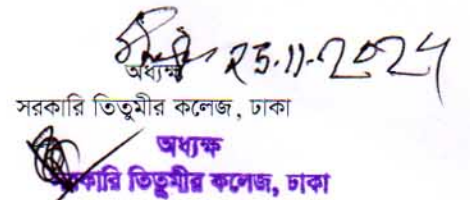 25.11.2024
অধ্যক্ষ
সরকারি তিতুমীর কলেজ, ঢাকা
অধ্যক্ষ
সরকারি তিতুমীর কলেজ, ঢাকা